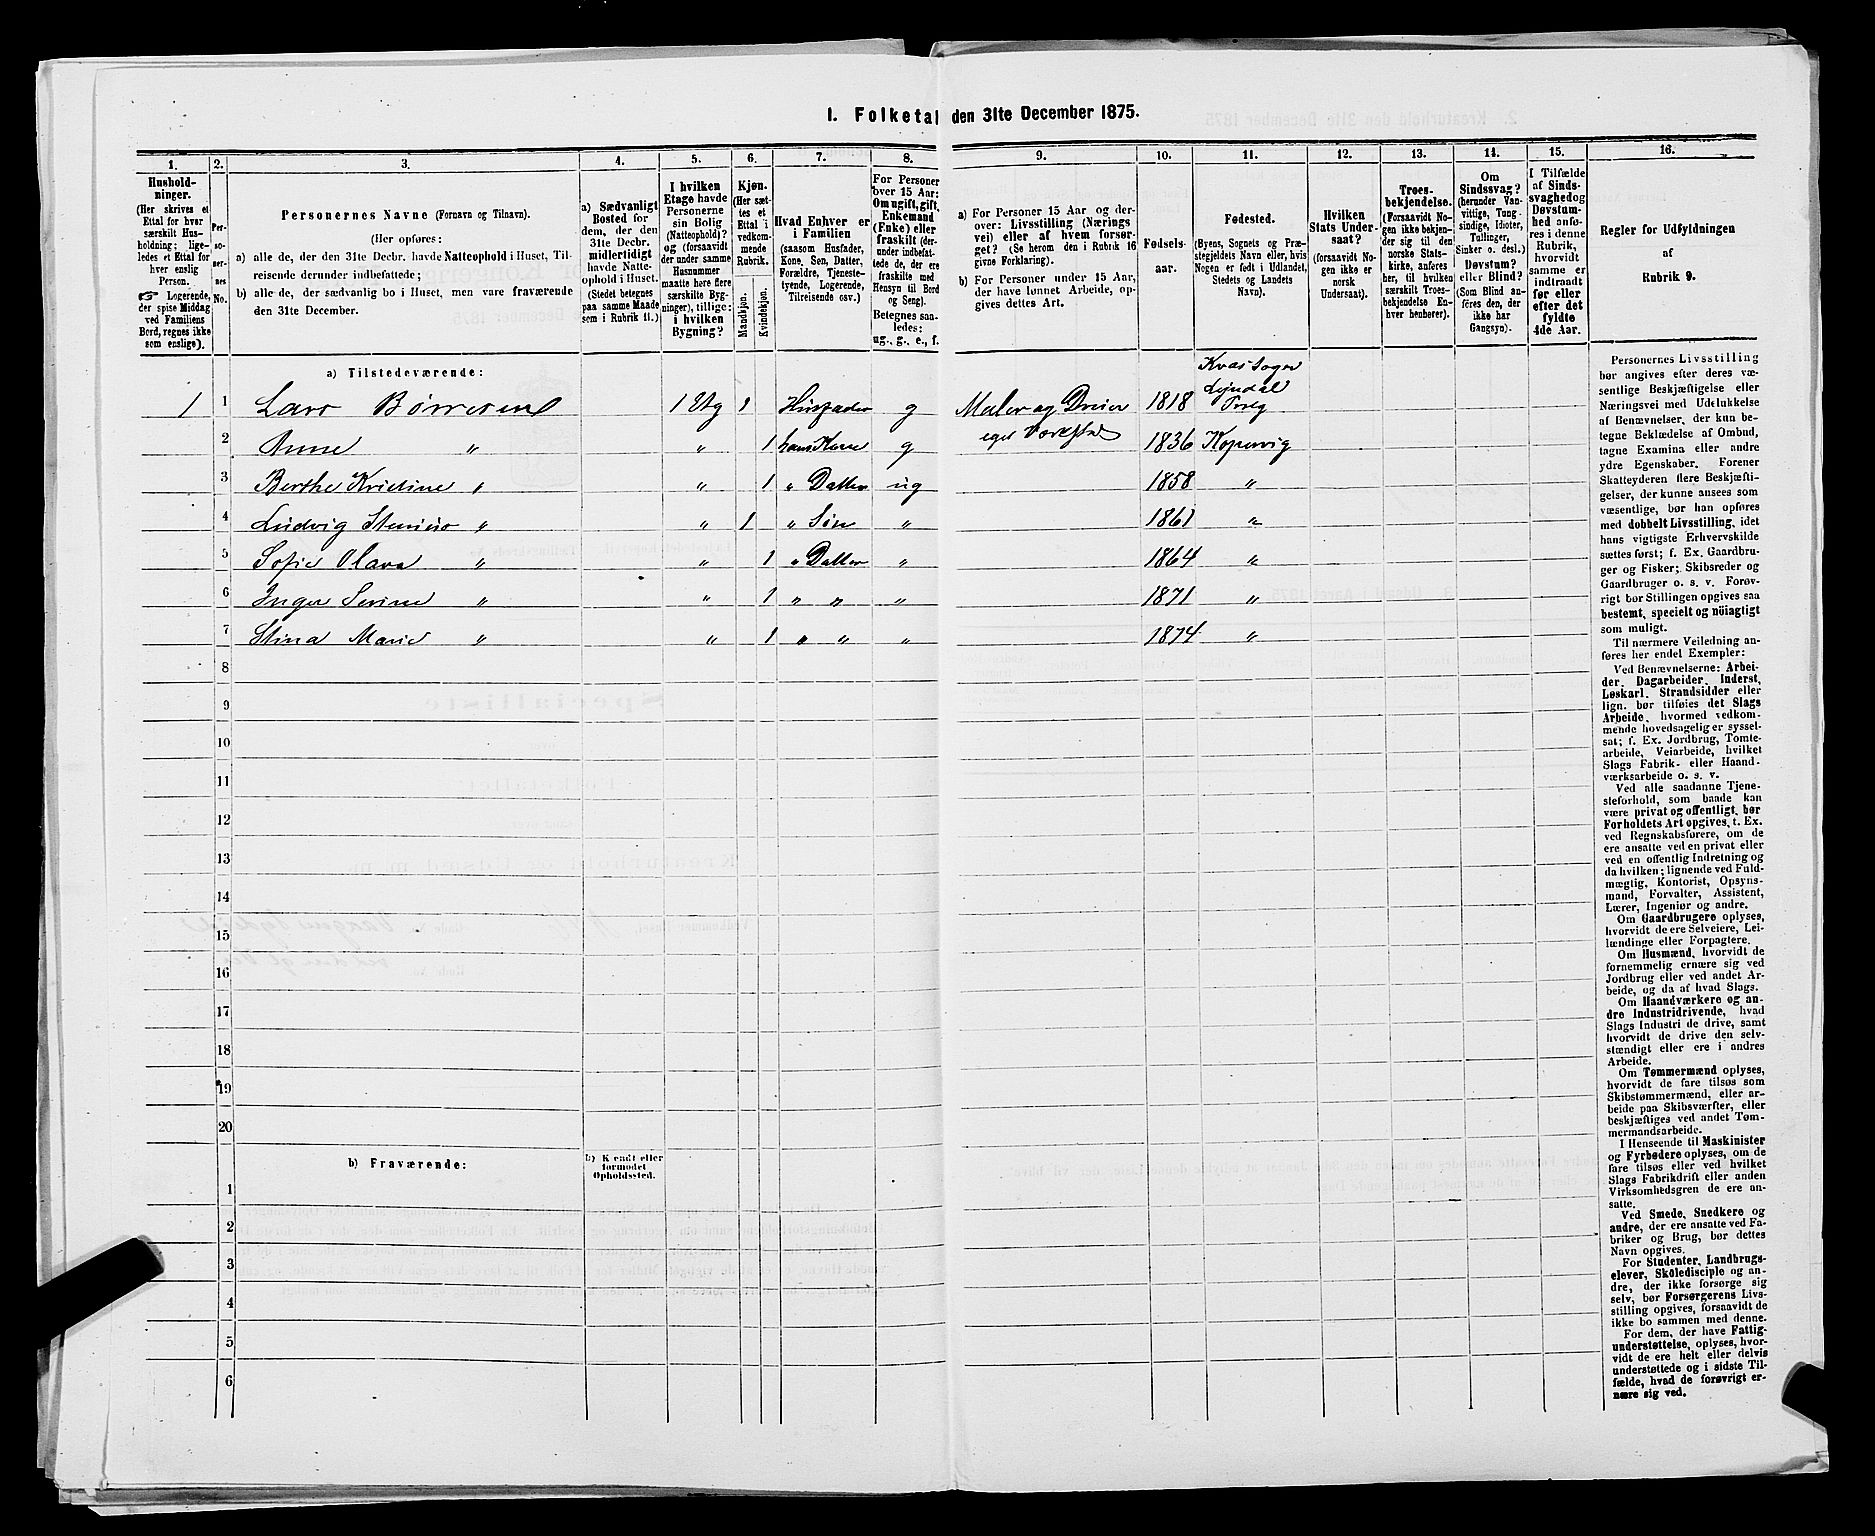 1. Folketal den 31te December 1875.
1. 2. 3. 4. 5. 6. 7. 8. 9. 10. 11. 12. 13. 14. 15. 16.
Hushold-
ninger.
(Her skrives et
Ettal for hver
særskilt Hus-
holdning; lige-
ledes et Ettal for
hver enslig
Person.
☞ Logerende,
der spise Middag
ved Familiens
Bord, regnes ikke
som enslige).
Per-
so-
ner-
nes
No.
Personernes Navne (Fornavn og Tilnavn).
(Her opføres:
a) alle de, der den 31te Decbr. havde Natteophold i Huset, Til-
reisende derunder indbefattede;
b) alle de, der sædvanlig bo i Huset, men vare fraværende
den 31te December.
a) Sædvanligt
Bosted for
dem, der den
31te Decbr.
midlertidigt
havde Natte-
ophold i Huset.
(Stedet betegnes
paa samme Maade
som i Rubrik 11.)
I hvilken
Etage havde
Personerne
sin Bolig
(Natteophold)?
og (forsaavidt
der under samme
Husnummer
maatte høre flere
særskilte Byg-
ninger), tillige:
i hvilken
Bygning?
Kjøn.
(Her sæt-
tes et
Ettal i
vedkom-
mende
Rubrik.
Mandkjøn.
Kvindekjøn.
Hvad Enhver er
i Familien
(saasom Husfader,
Kone, Søn, Datter,
Forældre, Tjeneste-
tyende, Logerende,
Tilreisende osv.)
For Personer
over 15 Aar:
Om ugift, gift,
Enkemand
(Enke) eller
fraskilt (der-
under indbefat-
tede de, der ere
fraskilte med
Hensyn til Bord
og Seng).
Betegnes saa-
ledes:
ug., g., e., f.
a) For Personer 15 Aar og der-
over: Livsstilling (Nærings
vei) eller af hvem forsør-
get? (Se herom den i Rubrik 16
givne Forklaring).
b) For Personer under 15 Aar,
der have lønnet Arbeide, op-
gives dettes Art.
Fødsels-
aar.
Fødested.
(Byens, Sognets og Præ-
stegjeldets Navn eller, hvis
Nogen er født i Udlandet,
Stedets og Landets
Navn).
Hvilken
Stats Under-
saat?
(forsaavidt No-
gen ikke er
norsk
Undersaat).
Troes-
bekjendelse.
(Forsaavidt No-
gen ikke bekjen-
der sig til den
norske Stats-
kirke, anføres
her, til hvilken
særskilt Troes-
bekjendelse En-
hver henhører).
Om
Sindssvag?
(herunder Van-
vittige, Tung-
sindige, Idioter,
Tullinger,
Sinker o. desl.)
Døvstum?
eller Blind?
(Som Blind an-
føres den, der
ikke har
Gangsyn).
I Tilfælde
af Sinds-
svaghed og
Døvstum-
hed anfø-
res i denne
Rubrik,
hvorvidt
samme er
indtraadt
før eller
efter det
fyldte
4de Aar.
Regler for Udfyldningen
af
Rubrik 9.
a) Tilstedeværende:
1 1 Lars Børresen 1 Etg 1 Husfader g Maler og Dreier 1818 Kvas Sogn Lyngdal Prstg
2 Anne " " 1 hans Kone g eget Værksted 1836 Kopervig
3 Berthe Kristine " " 1 " Datter ug 1858 "
4 Ludvig " " 1 " Søn " 1861 "
5 Sofie Olava " " 1 " Datter " 1864 "
6 Inger Serine " " 1 " " " 1871 "
7 Stina Marie " " 1 " " " 1874 "
8
9
10
11
12
13
14
15
16
17
18
19
20
b) Fraværende:
b) Kjendt eller
formodet
Opholdssted.
1
2
3
4
5
6
Personernes Livsstilling
bør angives efter deres væ-
sentlige Beskjæftigelse eller
Næringsvei med Udelukkelse
af Benævnelser, der kun be-
tegne Beklædelse af Ombud,
tagne Examina eller andre
ydre Egenskaber. Forener
Skatteyderen flere Beskjæfti-
gelser, der kunne ansees som
væsentlige, bør han opføres
med dobbelt Livsstilling, idet
hans vigtigste Erhvervskilde
sættes først; f. Ex. Gaardbru-
ger og Fisker; Skibsreder og
Gaardbruger o. s. v. Forøv-
rigt bør Stillingen opgives saa
bestemt, specielt og nöiagtigt
som muligt.
Til nærmere Veiledning an-
føres her endel Exempler:
Ved Benævnelserne: Arbei-
der, Dagarbeider, Inderst,
Løskarl, Strandsidder eller
lign. bør tilføies det Slags
Arbeide, hvormed vedkom-
mende hovedsagelig er syssel-
sat; f. Ex. Jordbrug, Tomte-
arbeide, Veiarbeide, hvilket
Slags Fabrik- eller Haand-
værksarbeide o. s. v.
Ved alle saadanne Tjene-
steforhold, som baade kan
være privat og offentligt, bør
Forholdets Art opgives, t. Ex.
ved Regnskabsførere, om de
ere ansatte ved en privat eller
ved en offentlig Indretning og
da hvilken; lignende ved Fuld-
mægtig, Kontorist, Opsyns-
mand, Forvalter, Assistent,
Lærer, Ingeniør og andre.
Om Gaardbrugere oplyses,
hvorvidt de ere Selveiere, Lei-
lændinge eller Forpagtere.
Om Husmænd, hvorvidt de
fornemmelig ernære sig ved
Jordbrug eller ved andet Ar-
beide, og da af hvad Slags.
Om Haandværkere og an-
dre Industridrivende, hvad
Slags Industri de drive, samt
hvorvidt de drive den selv-
stændigt eller ere i andres
Arbeide.
Om Tømmermænd oplyses,
hvorvidt de fare tilsøs som
Skibstømmermænd, eller ar-
beide paa Skibsværfter, eller
beskjæftiges ved andet Tøm-
mermandsarbeide.
I Henseende til Maskinister
og Fyrbødere oplyses, om de
fare tilsøs eller ved hvilket
Slags Fabrikdrift eller anden
Virksomhedsgren de ere an-
satte.
Ved Smede, Snedkere og
andre, der ere ansatte ved Fa-
briker og Brug, bør dettes
Navn opgives.
For Studenter, Landbrugs-
elever, Skoledisciple og an-
dre, der ikke forsørge sig
selv, bør Forsørgerens Livs-
stilling opgives, forsaavidt de
ikke bo sammen med denne.
For dem, der have Fattig-
understøttelse, oplyses, hvor-
vidt de ere helt eller delvis
understøttede og i sidste Til-
fælde, hvad de forøvrigt er-
nære sig ved.